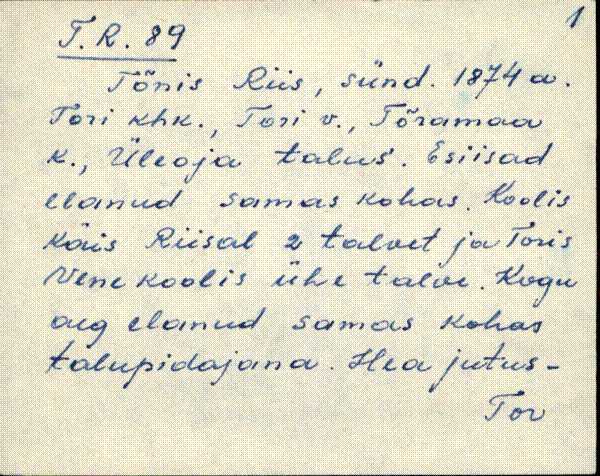 1
T.R. 89
Tõnis Riis, sünd. 1874 a.
Tori khk., Tori v., Tõramaa
k., Üleoja talus. Esiisad
elanud samas kohas. Koolis
käis Riisal 2 talvet ja Toris
Vene koolis ühe talve. Kogu
aeg elanud samas kohas
talupidajana. Hea jutus-
Tor